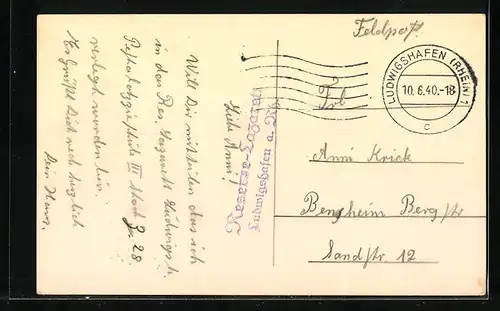 Feldpost.
LUDWIGSHAFEN (RHEIN) 1
10.6.40.-18
c
Reserve-Lazarett
Ludwigshafen a. Rh.
Liebe Anni!
Will Dir mitteilen das ich
in das Res. Lazarett Ludwigsh.
Pestalozzischule III Stock Zi. 28.
verlegt worden bin.
Es grüßt Dich recht herzlich
Dein Hans.
Anni Krick
Bensheim Bergstr
Sandstr. 12